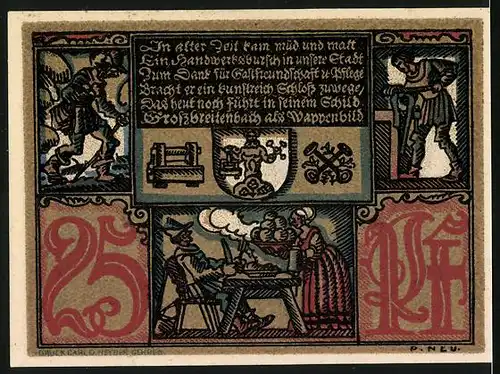 In alter Zeit kam müd und matt
Ein Handwerksbursch in unsre Stadt
Zum Dank für Gastfreundschaft u. Pflege
Bracht er ein kunstreich Schloß zuwege,
Das heut noch führt in seinem Schild
Großbreitenbach als Wappenbild
25 Pf
DRUCK CARL O. GEHREN
P. NEU.